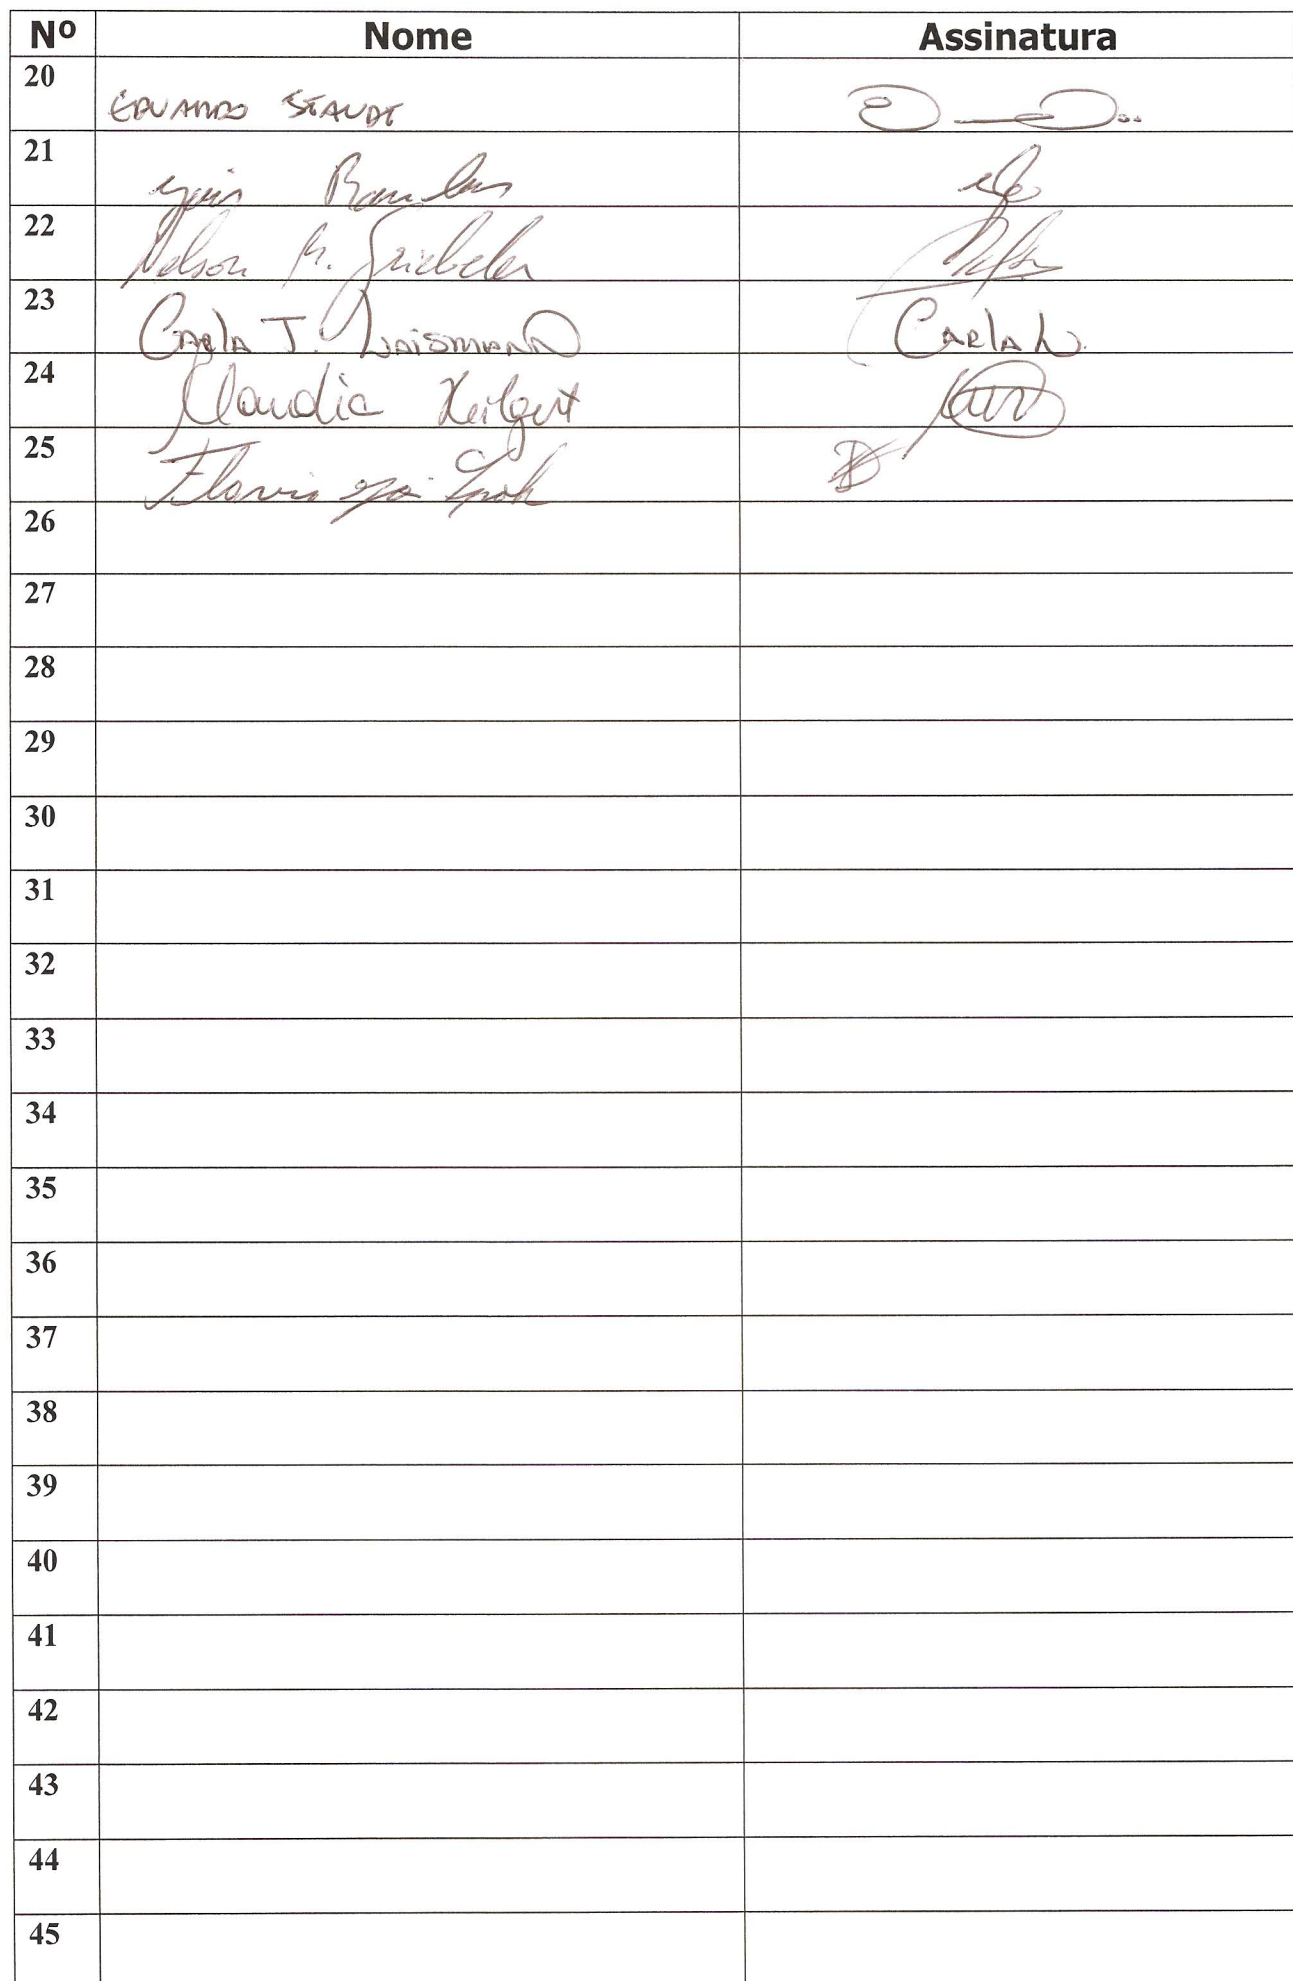 Nº Nome Assinatura
20 EDUARDO STAUDT
21
22 Nelson M. Griebeler
23 CARLA J. WAISMANN CARLA W.
24 Claudia Heilgert
25
26
27
28
29
30
31
32
33
34
35
36
37
38
39
40
41
42
43
44
45